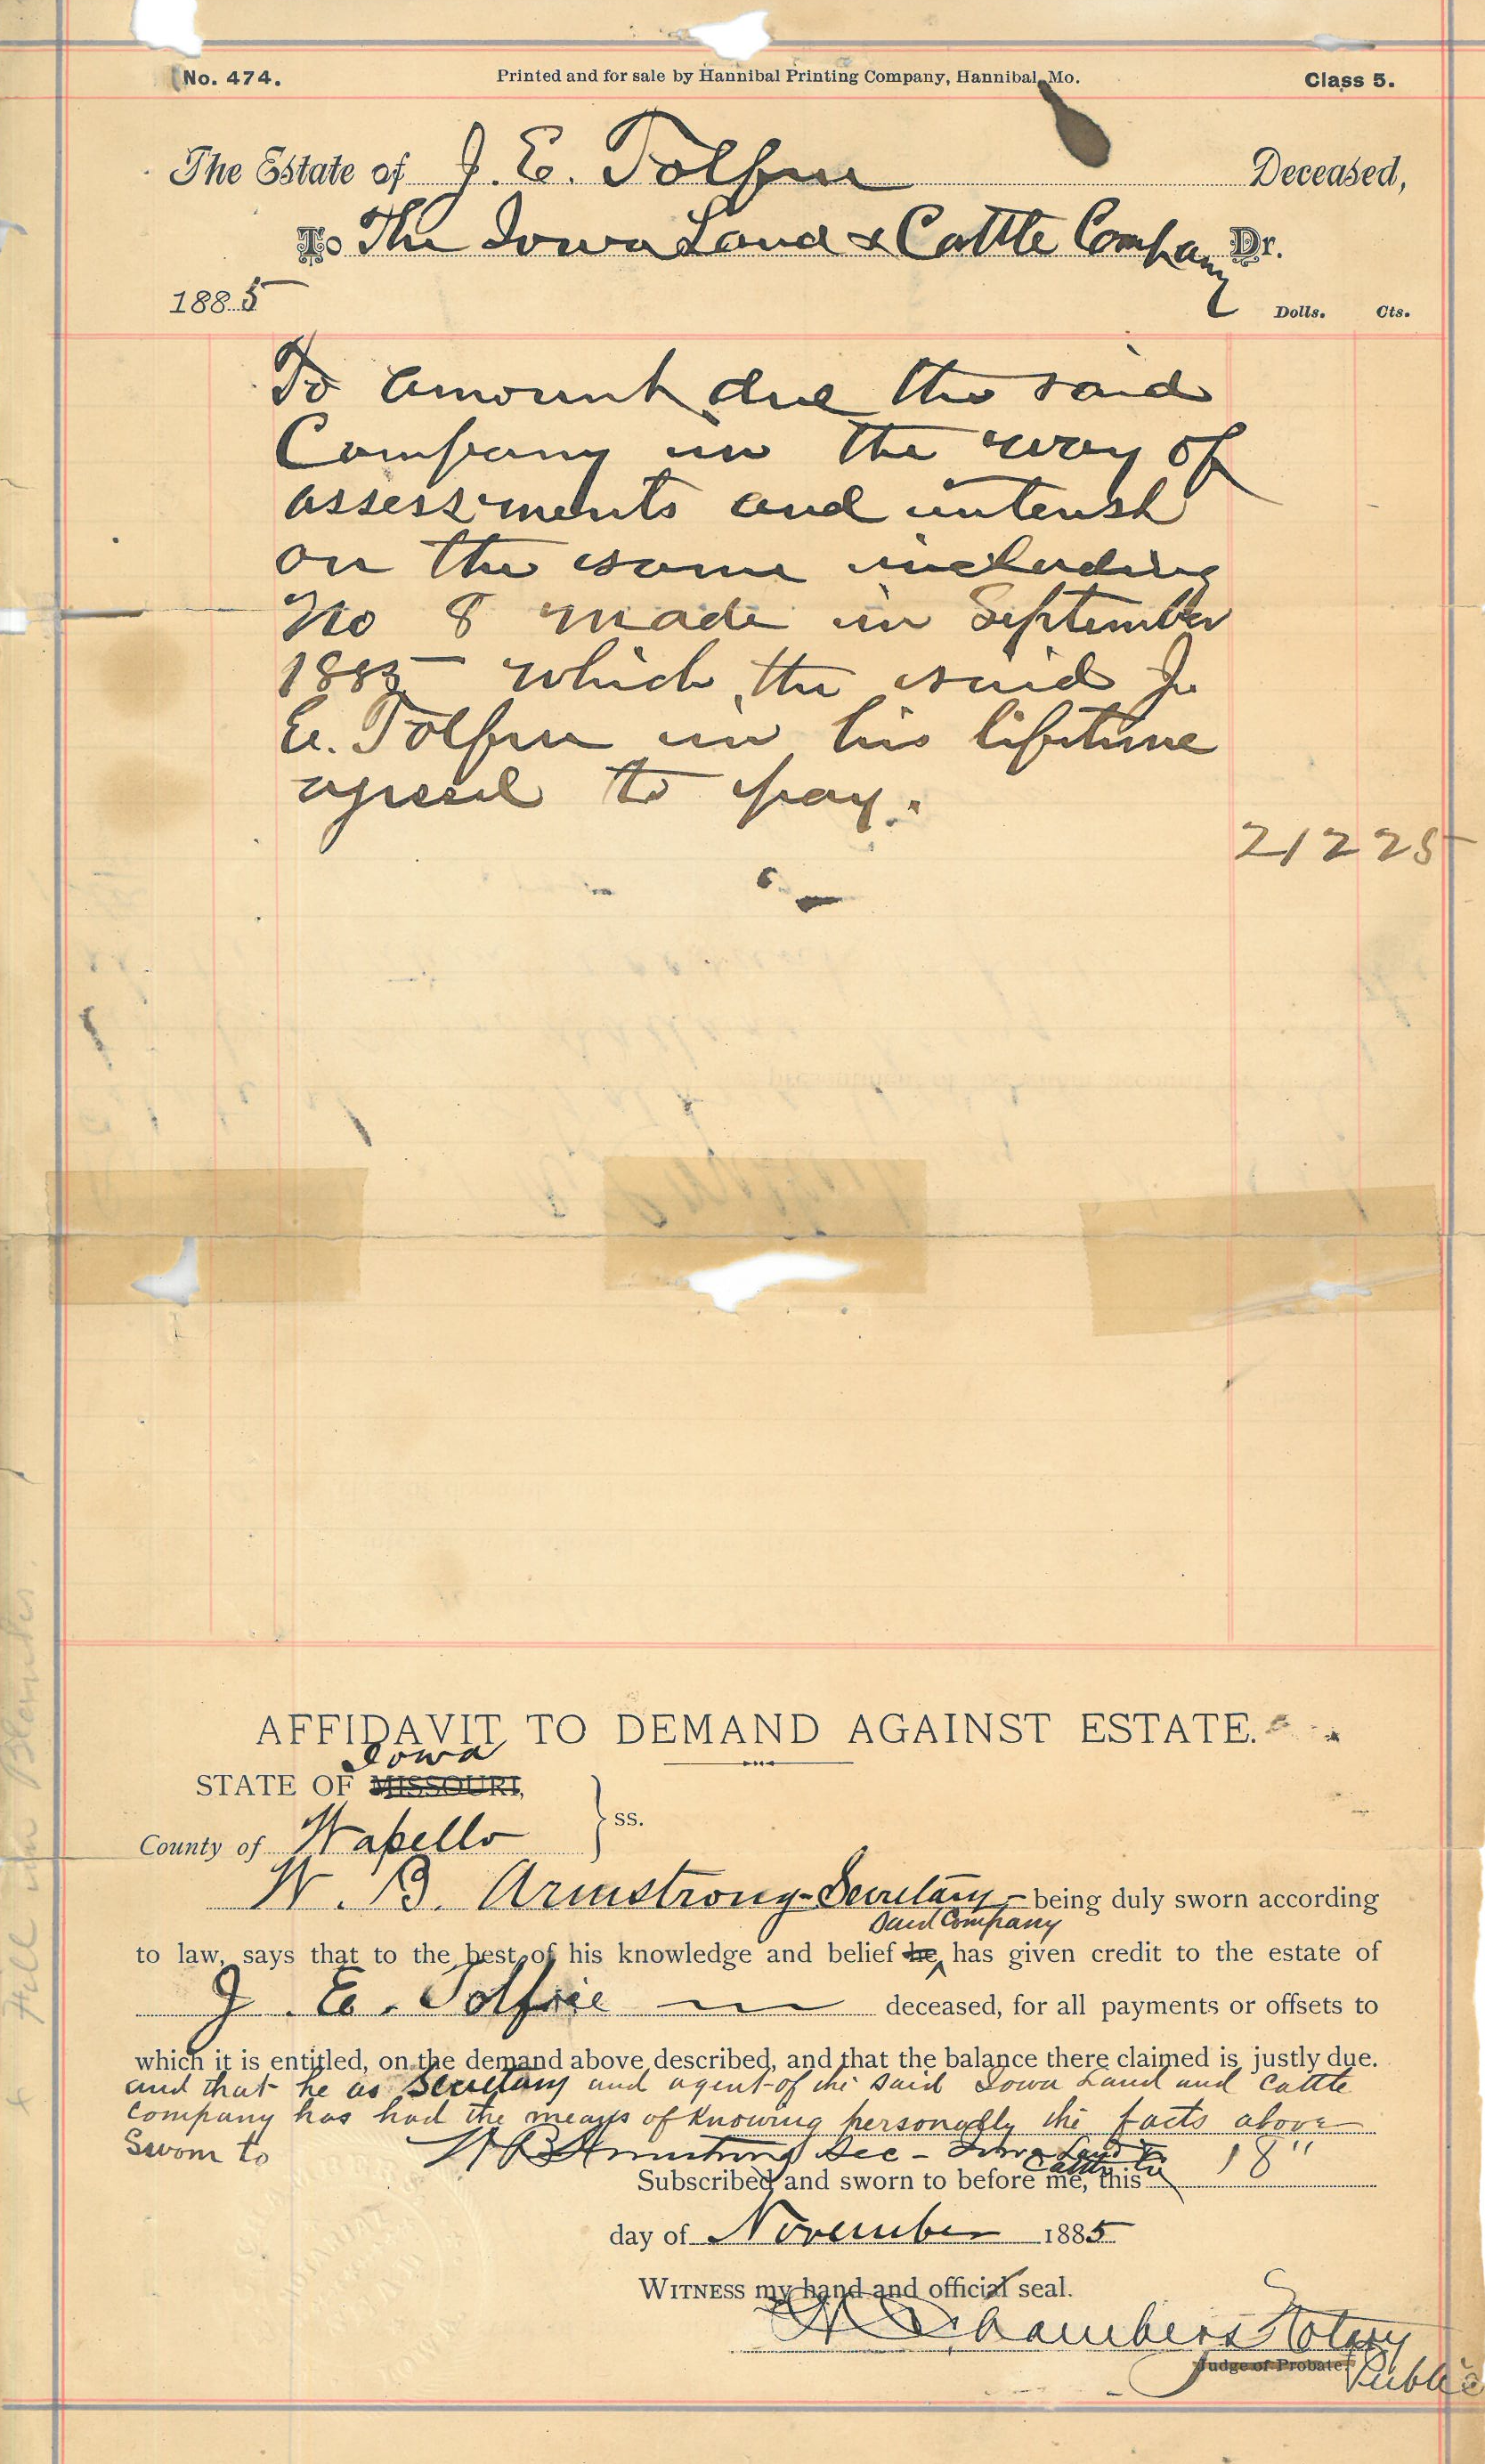 No. 474. Printed and for sale by Hannibal Printing Company, Hannibal, Mo. Class 5.
The Estate of J. E. Tolfree Deceased,
To The Iowa Land & Cattle Company Dr.
1885 Dolls. Cts.
To amount due the said
Company in the way of
assessments and interest
on the same including
No 8 made in September
1885 which the said J.
E. Tolfree in his lifetime
agreed to pay.
212 25
AFFIDAVIT TO DEMAND AGAINST ESTATE.
Iowa
STATE OF MISSOURI,
County of Wapello ss.
W. B. Armstrong - Secretary - being duly sworn according
said Company
to law, says that to the best of his knowledge and belief he has given credit to the estate of
J. E. Tolfree deceased, for all payments or offsets to
which it is entitled, on the demand above described, and that the balance there claimed is justly due.
and that he as Secretary and agent of the said Iowa Land and Cattle
Company has had the means of knowing personally the facts above
Sworn to W B Armstrong Sec - Iowa Land &
Cattle Co
Subscribed and sworn to before me, this 18"
day of November 1885
WITNESS my hand and official seal.
Chambers Notary
Judge of Probate. Public